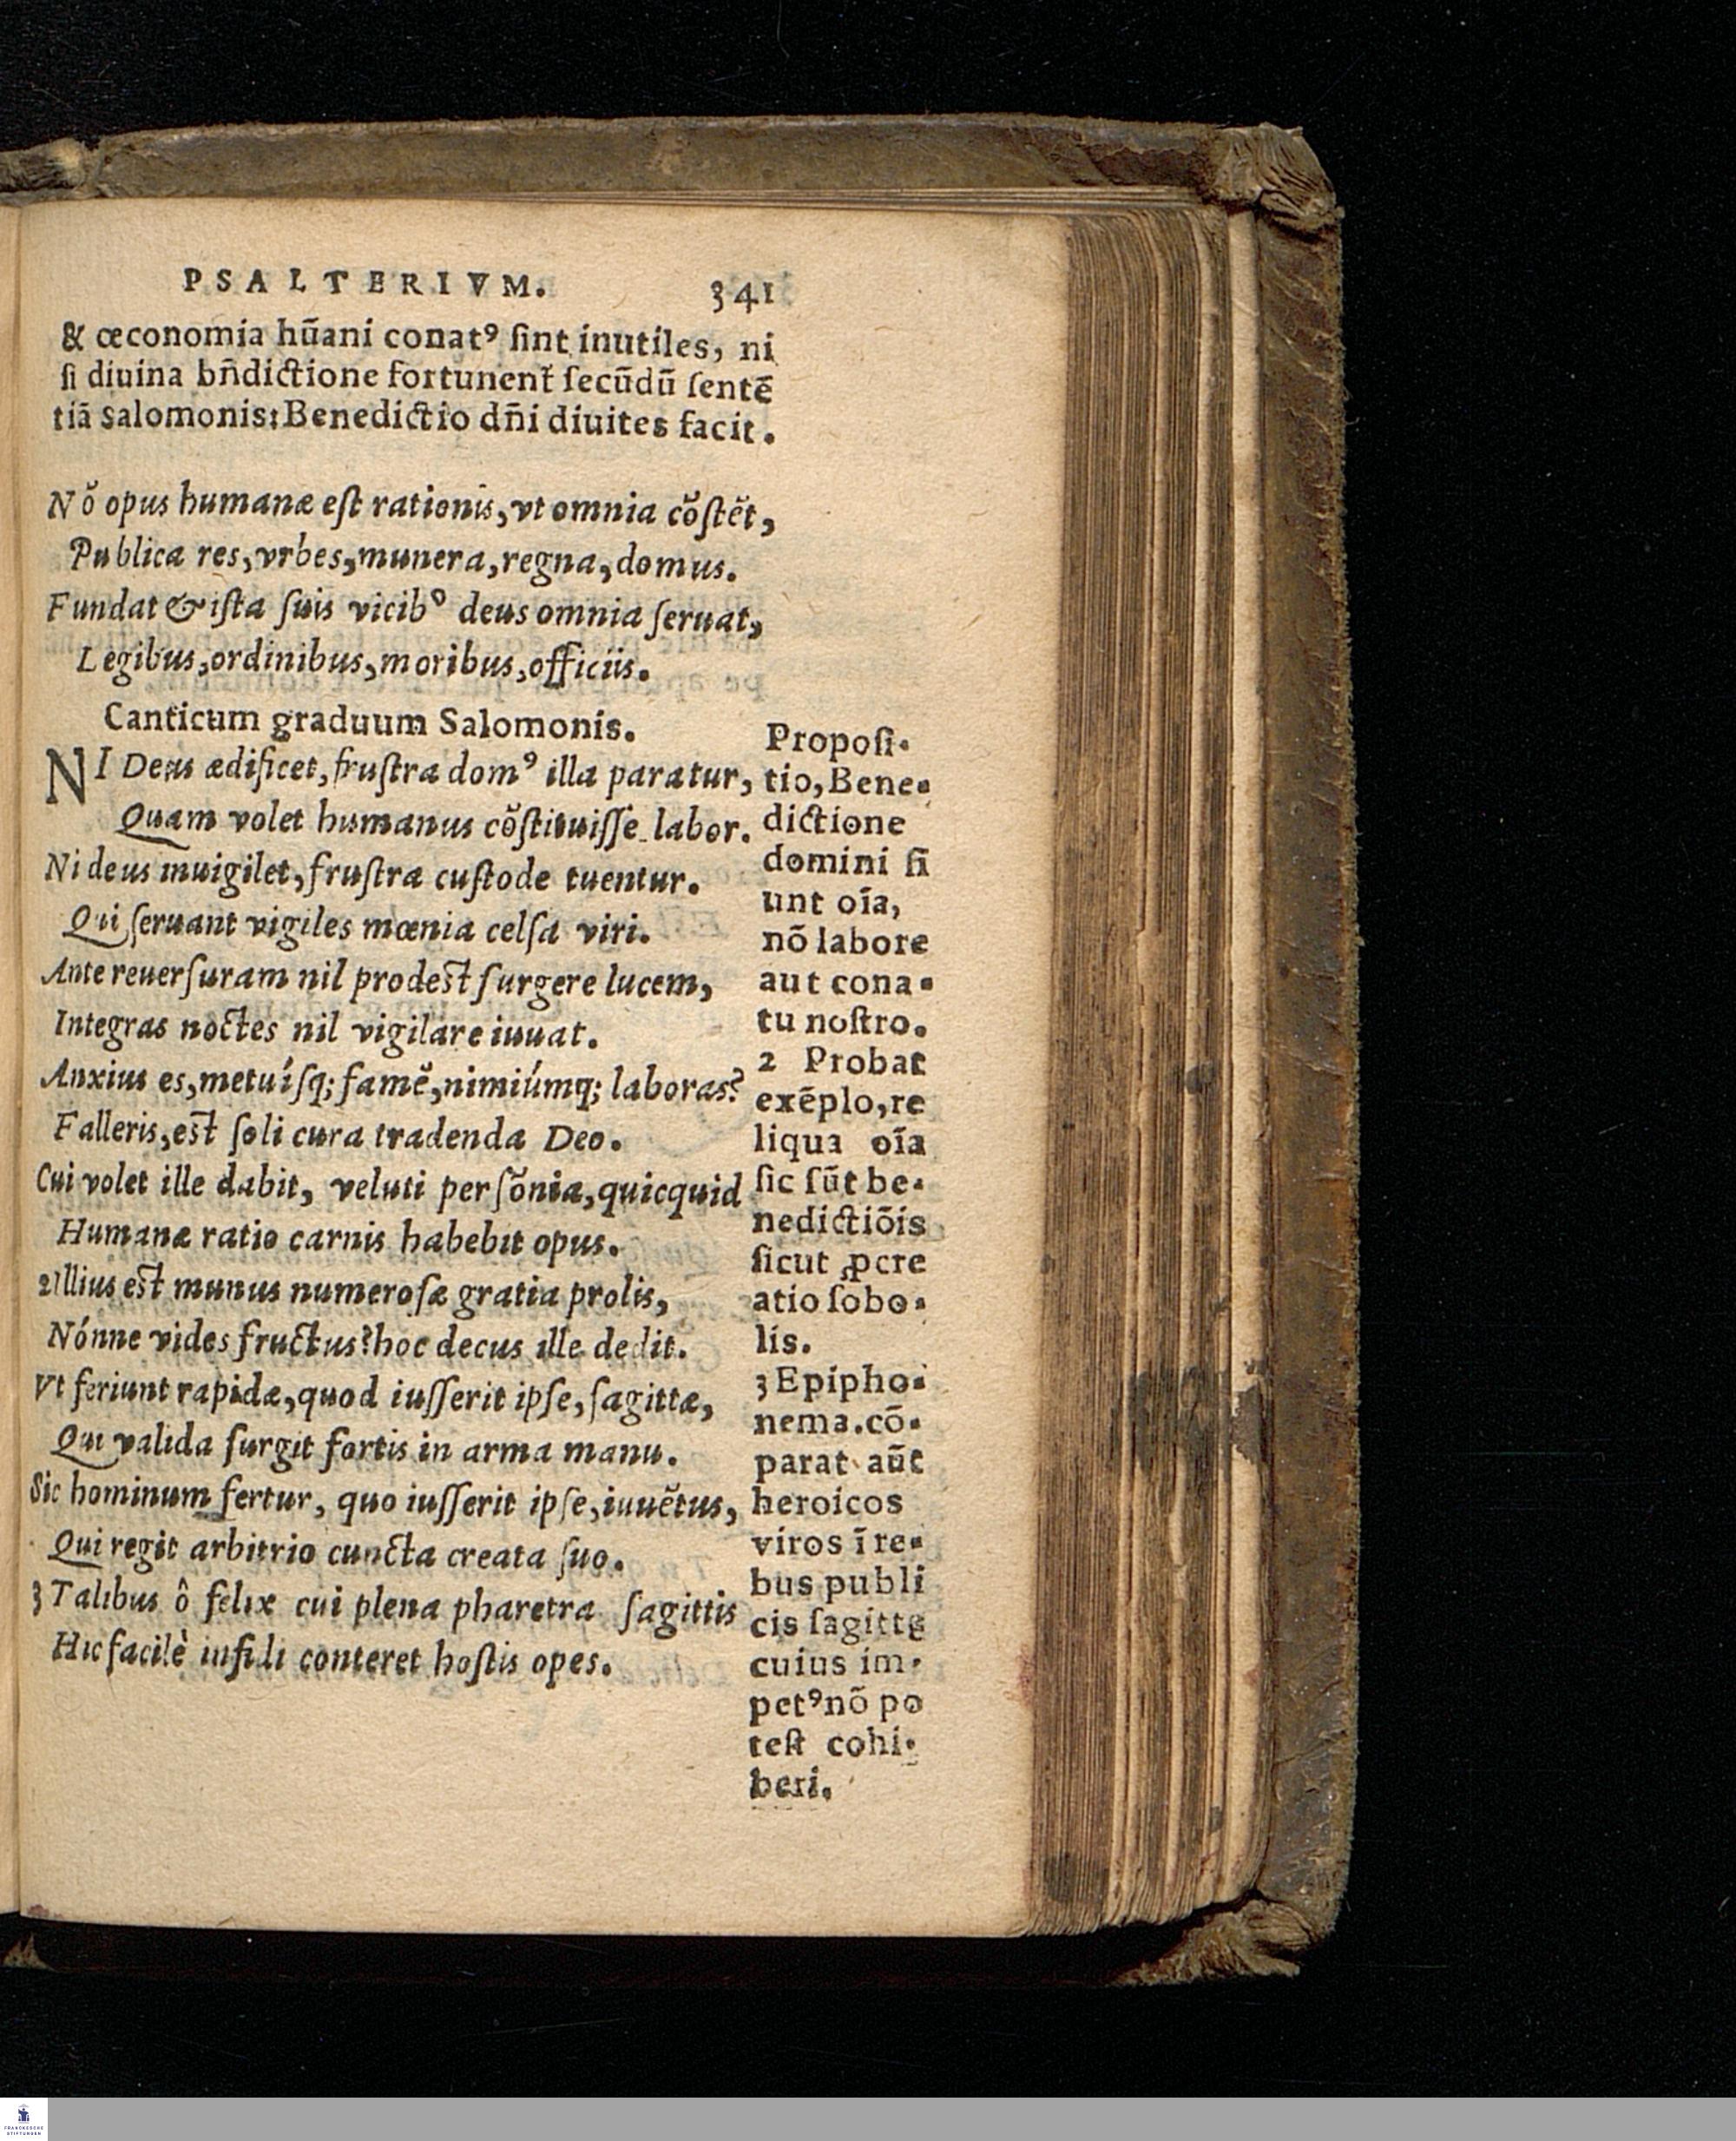 PSALTERIVM. 341
& œconomia hūani conatꝰ ſint inutiles, ni
ſi diuina bñdictione fortunent̃ ſecūdū ſentē
tiā Salomonis: Benedictio dñi diuites facit.
Nŏ opus humanæ eſt rationis, vt omnia cŏſtĕt,
Publica res, vrbes, munera, regna, domus.
Fundat & iſta ſuis vicibꝰ deus omnia ſeruat,
Legibus, ordinibus, moribus, officiis.
Canticum graduum Salomonis.
NI Deus ædificet, fruſtra domꝰ illa paratur,
Quam volet humanus cŏſtituiſſe labor.
Ni deus inuigilet, fruſtra cuſtode tuentur.
Qui ſeruant vigiles mœnia celſa viri.
Ante reuerſuram nil prodest ſurgere lucem,
Integras noctes nil vigilare iuuat.
Anxius es, metuíſq; famĕ, nimiúmq; laboras?
Falleris, est ſoli cura tradenda Deo.
Cui volet ille dabit, veluti per ſŏnia, quicquid
Humanæ ratio carnis habebit opus.
2 Illius est munus numeroſæ gratia prolis,
Nónne vides fructus? hoc decus ille dedit.
Vt feriunt rapidæ, quod iuſſerit ipſe, ſagittæ,
Qui valida ſurgit fortis in arma manu.
Sic hominum fertur, quo iuſſerit ipſe, iuuĕtus,
Qui regit arbitrio cuncta creata ſuo.
3 Talibus ô felix cui plena pharetra ſagittis
Hic facilè infili conteret hoſtis opes.
Propoſi-
tio, Bene-
dictione
domini fi
unt oīa,
nō labore
aut cona-
tu noſtro.
2 Probat
exēplo, re
liqua oīa
ſic ſūt be-
nedictiōis
ſicut ꝓcre
atio ſobo-
lis.
3 Epipho-
nema. cō-
parat aūt
heroicos
viros ī re-
bus publi
cis ſagittę
cuius im-
petꝰ nō po
teſt cohi-
beri.
FRANCKESCHE
STIFTUNGEN